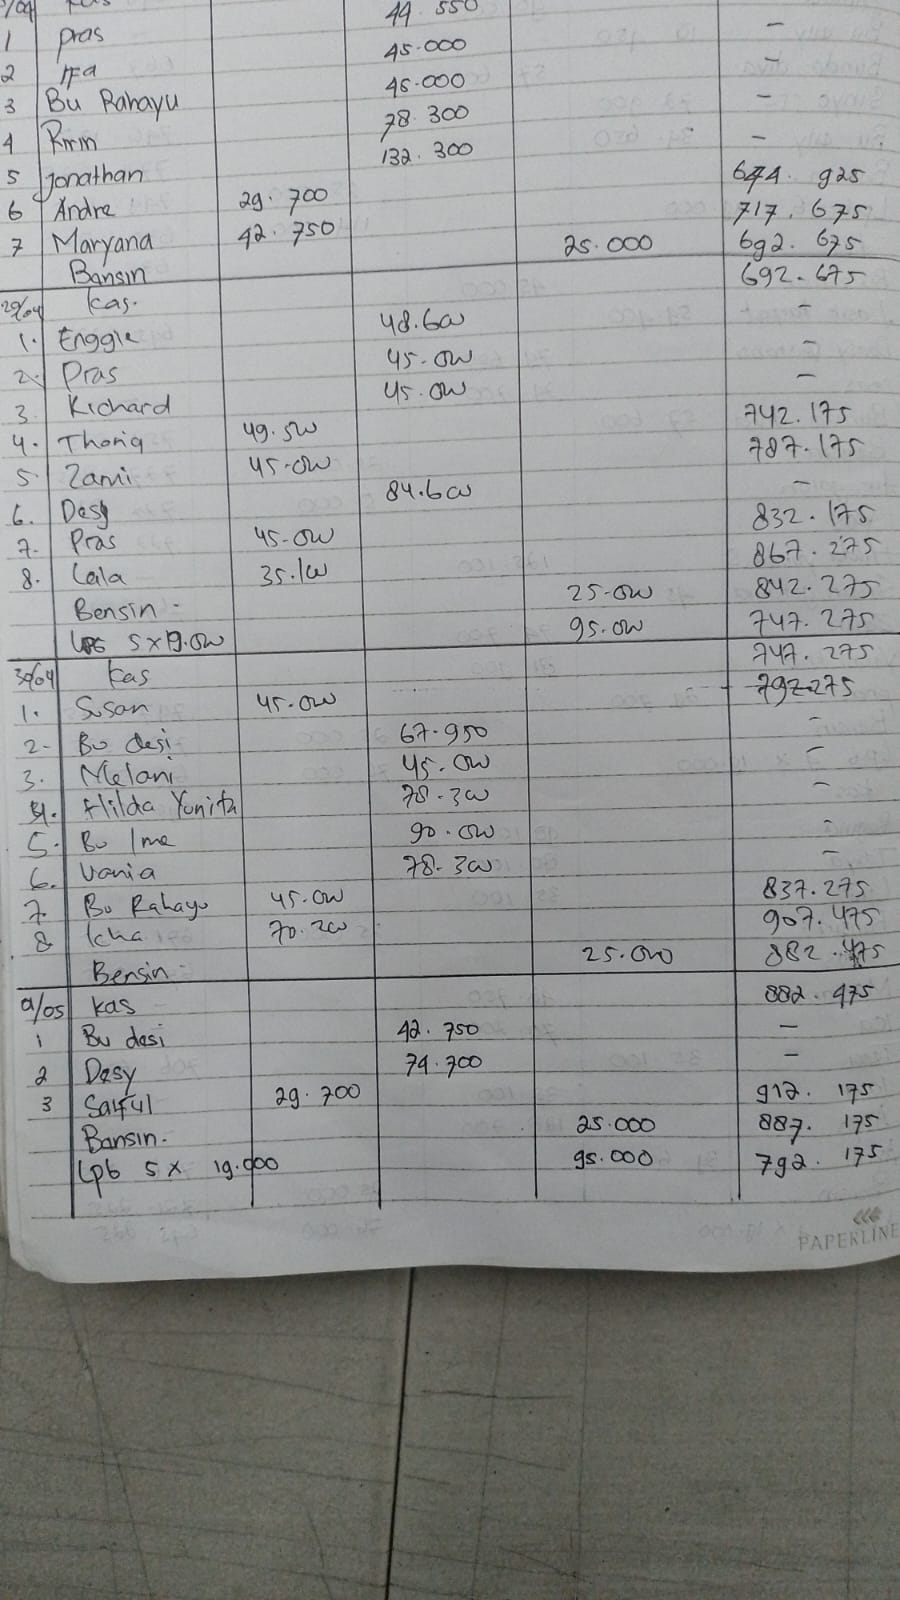 44.550
1 Pras 45.000 -
2 Ifa 45.000 -
3 Bu Rahayu 78.300 -
4 Ririn 132.300 -
5 Jonathan 674.925
6 Andre 29.700 717.675
7 Maryana 42.750 25.000 692.675
Bansin 692.675
29/04 kas.
1. Enggie 48.600 -
2. Pras 45.000 -
3. Richard 45.000 -
4. Thoriq 49.500 742.175
5. Zami 45.000 787.175
6. Desy 84.600 -
7. Pras 45.000 832.175
8. Laila 35.100 867.275
Bensin - 25.000 842.275
LPG 5x19.000 95.000 747.275
30/04 kas 747.275
1. Susan 45.000 792275
2- Bu desi 67.950 -
3. Melani 45.000 -
4. Hilda Yunita 78.300 -
5. Bu Ima 90.000 -
6. Vania 78.300 -
7. Bu Rahayu 45.000 837.275
8 Icha 70.200 907.475
Bensin - 25.000 882.475
kas 882.475
1 Bu desi 42.750 -
2 Desy 74.700 -
3 Saiful 29.700 912.175
Bansin. 25.000 887.175
Lpb 5 x 19.000 95.000 792.175
PAPERLINE